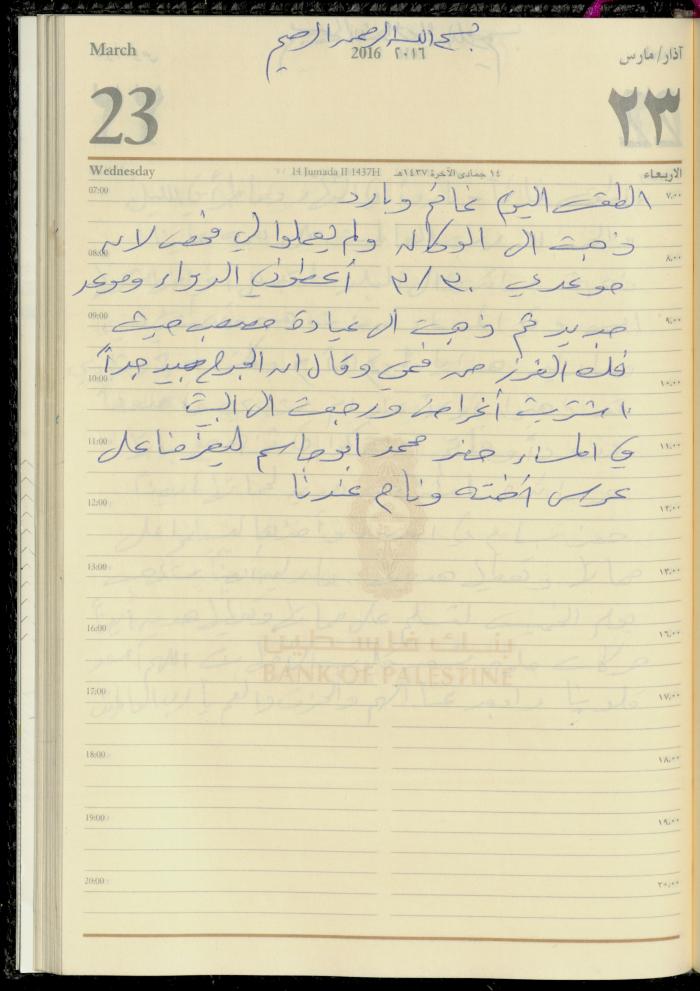 بسم الله الرحمن الرحيم
March 2016 ٢٠١٦ آذار/مارس
23 ٢٣
Wednesday 14 Jumada II 1437H ١٤ جمادى الآخرة ١٤٣٧هـ الأربعاء
07:00 ٧,٠٠
الطقس اليوم غائم وبارد
ذهبت الى الوكاله ولم يعملوا لي فحص لانه
08:00 ٨,٠٠
موعدي ٣٠/٣ أعطوني الدواء وموعد
09:00 ٩,٠٠
جديد ثم ذهبت الى عيادة مصعب حيث
فك الغرز من فمي وقال ان الجرح جيد جداً
10:00 ١٠,٠٠
اشتريت أغراض ورجعت الى البيت
11:00 ١١,٠٠
في المساء حضر محمد ابو جاسم ليعزمنا على
عرس اخته ونام عندنا
12:00 ١٢,٠٠
13:00 ١٣,٠٠
16:00 ١٦,٠٠
بنك فلسطين
BANK OF PALESTINE
17:00 ١٧,٠٠
18:00 ١٨,٠٠
19:00 ١٩,٠٠
20:00 ٢٠,٠٠